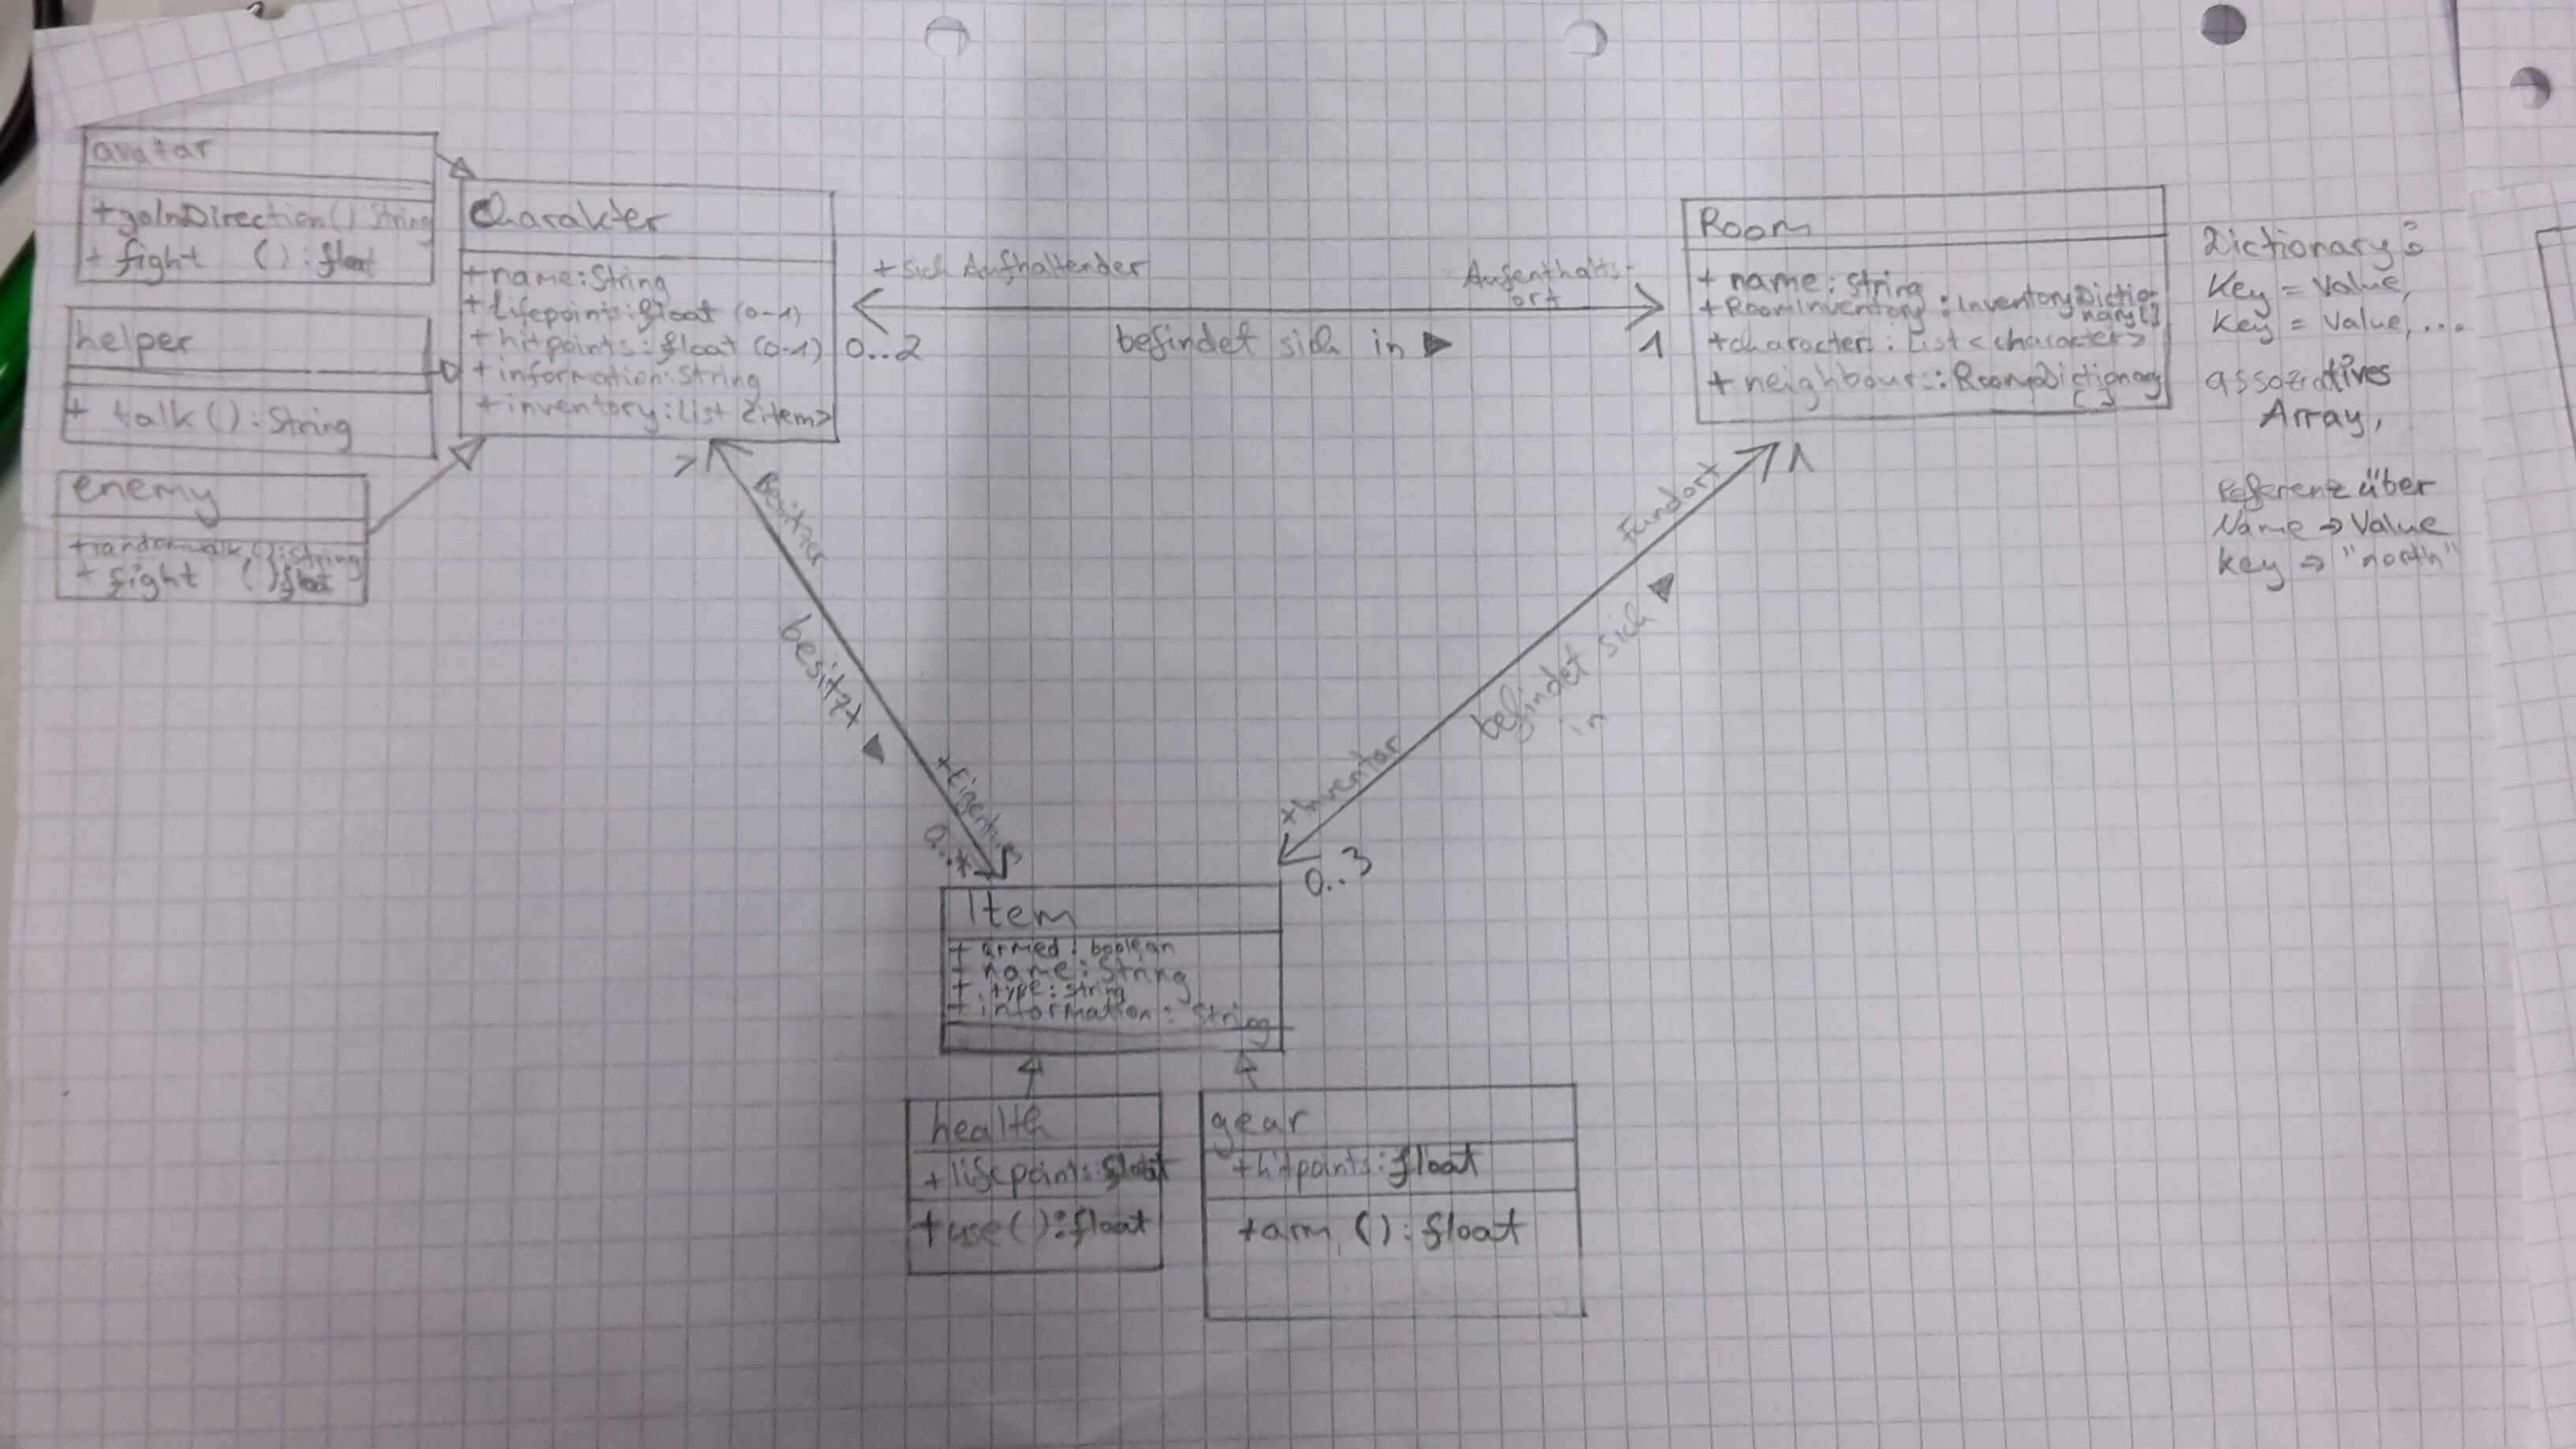 avatar
+goInDirection() String
+ fight () : float
helper
+ talk() : String
enemy
+randomwalk():String
+ fight () float
Charakter
+name:String
+lifepoints:float (0-1)
+hitpoints:float (0-1)
+information:String
+inventory:List <item>
+sich Aufhaltender
Aufenthalts-
ort
0..2
befindet sich in
1
Room
+ name: String
+ RoomInventory : InventoryDictio
nary[]
+characters: List <character>
+ neighbours:RoomDictionary
[]
Dictionary:
Key = Value,
Key = Value, ...
assoziatives
Array,
Referenz über
Name ⇒ Value
key ⇒ "north"
Besitzer
besitzt
+Eigentum
0..*
1
Fundort
befindet sich
in
+Inventar
0..3
Item
+ armed : boolean
+ name: String
+ type: String
+ information: String
health
+ lifepoints:float
+use():float
gear
+hitpoints:float
+arm (): float